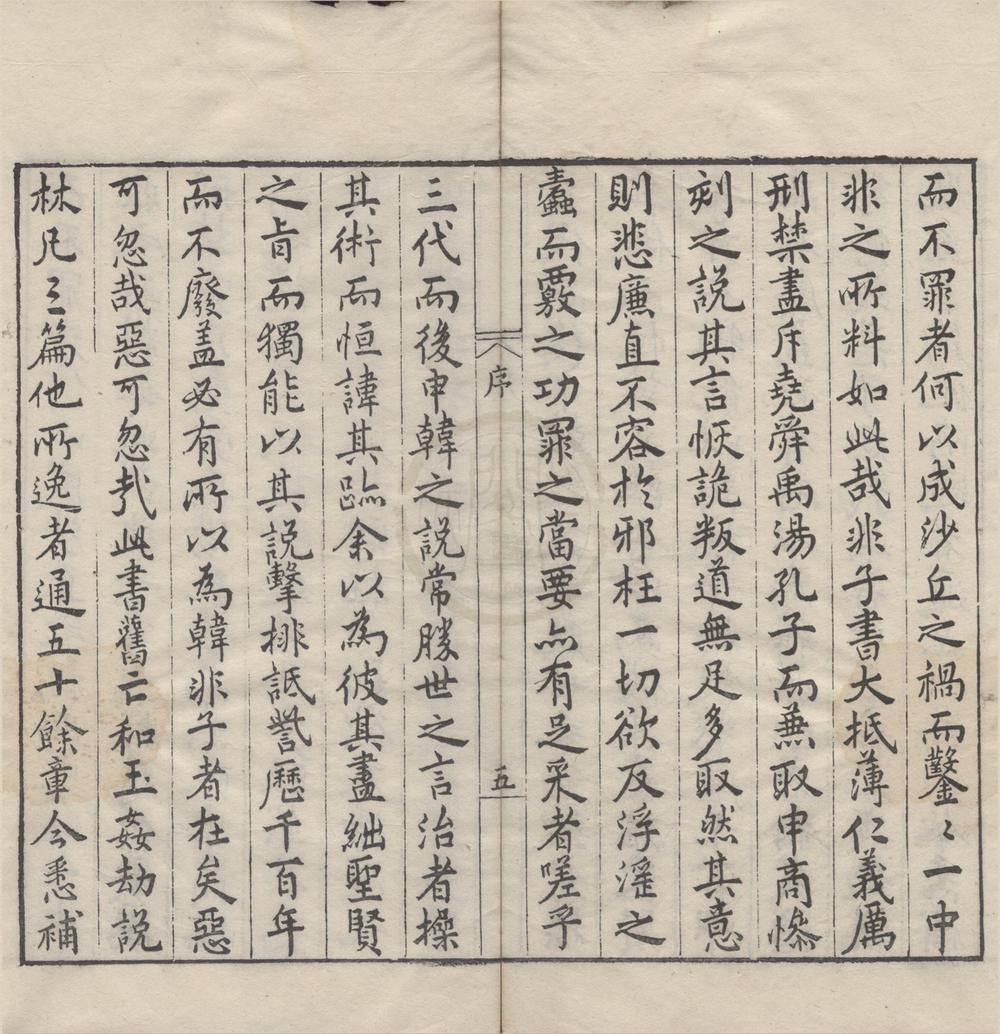 而不罪者何以成沙丘之禍而鑿〻一中
非之所料如此哉非子書大抵薄仁義厲
刑禁盡斥堯舜禹湯孔子而兼取申商慘
刻之說其言恢詭叛道無足多取然其意
則悲廉直不容於邪枉一切欲反浮滛之
蠹而覈之功罪之當要亦有足采者嗟乎
序
五
三代而後申韓之說常勝世之言治者操
其術而恒諱其跡余以為彼其盡絀聖賢
之旨而獨能以其說擊排詆訾歷千百年
而不廢盖必有所以為韓非子者在矣惡
可忽哉惡可忽哉此書舊亡和玉姦劫說
林凡三篇他所逸者通五十餘章今悉補